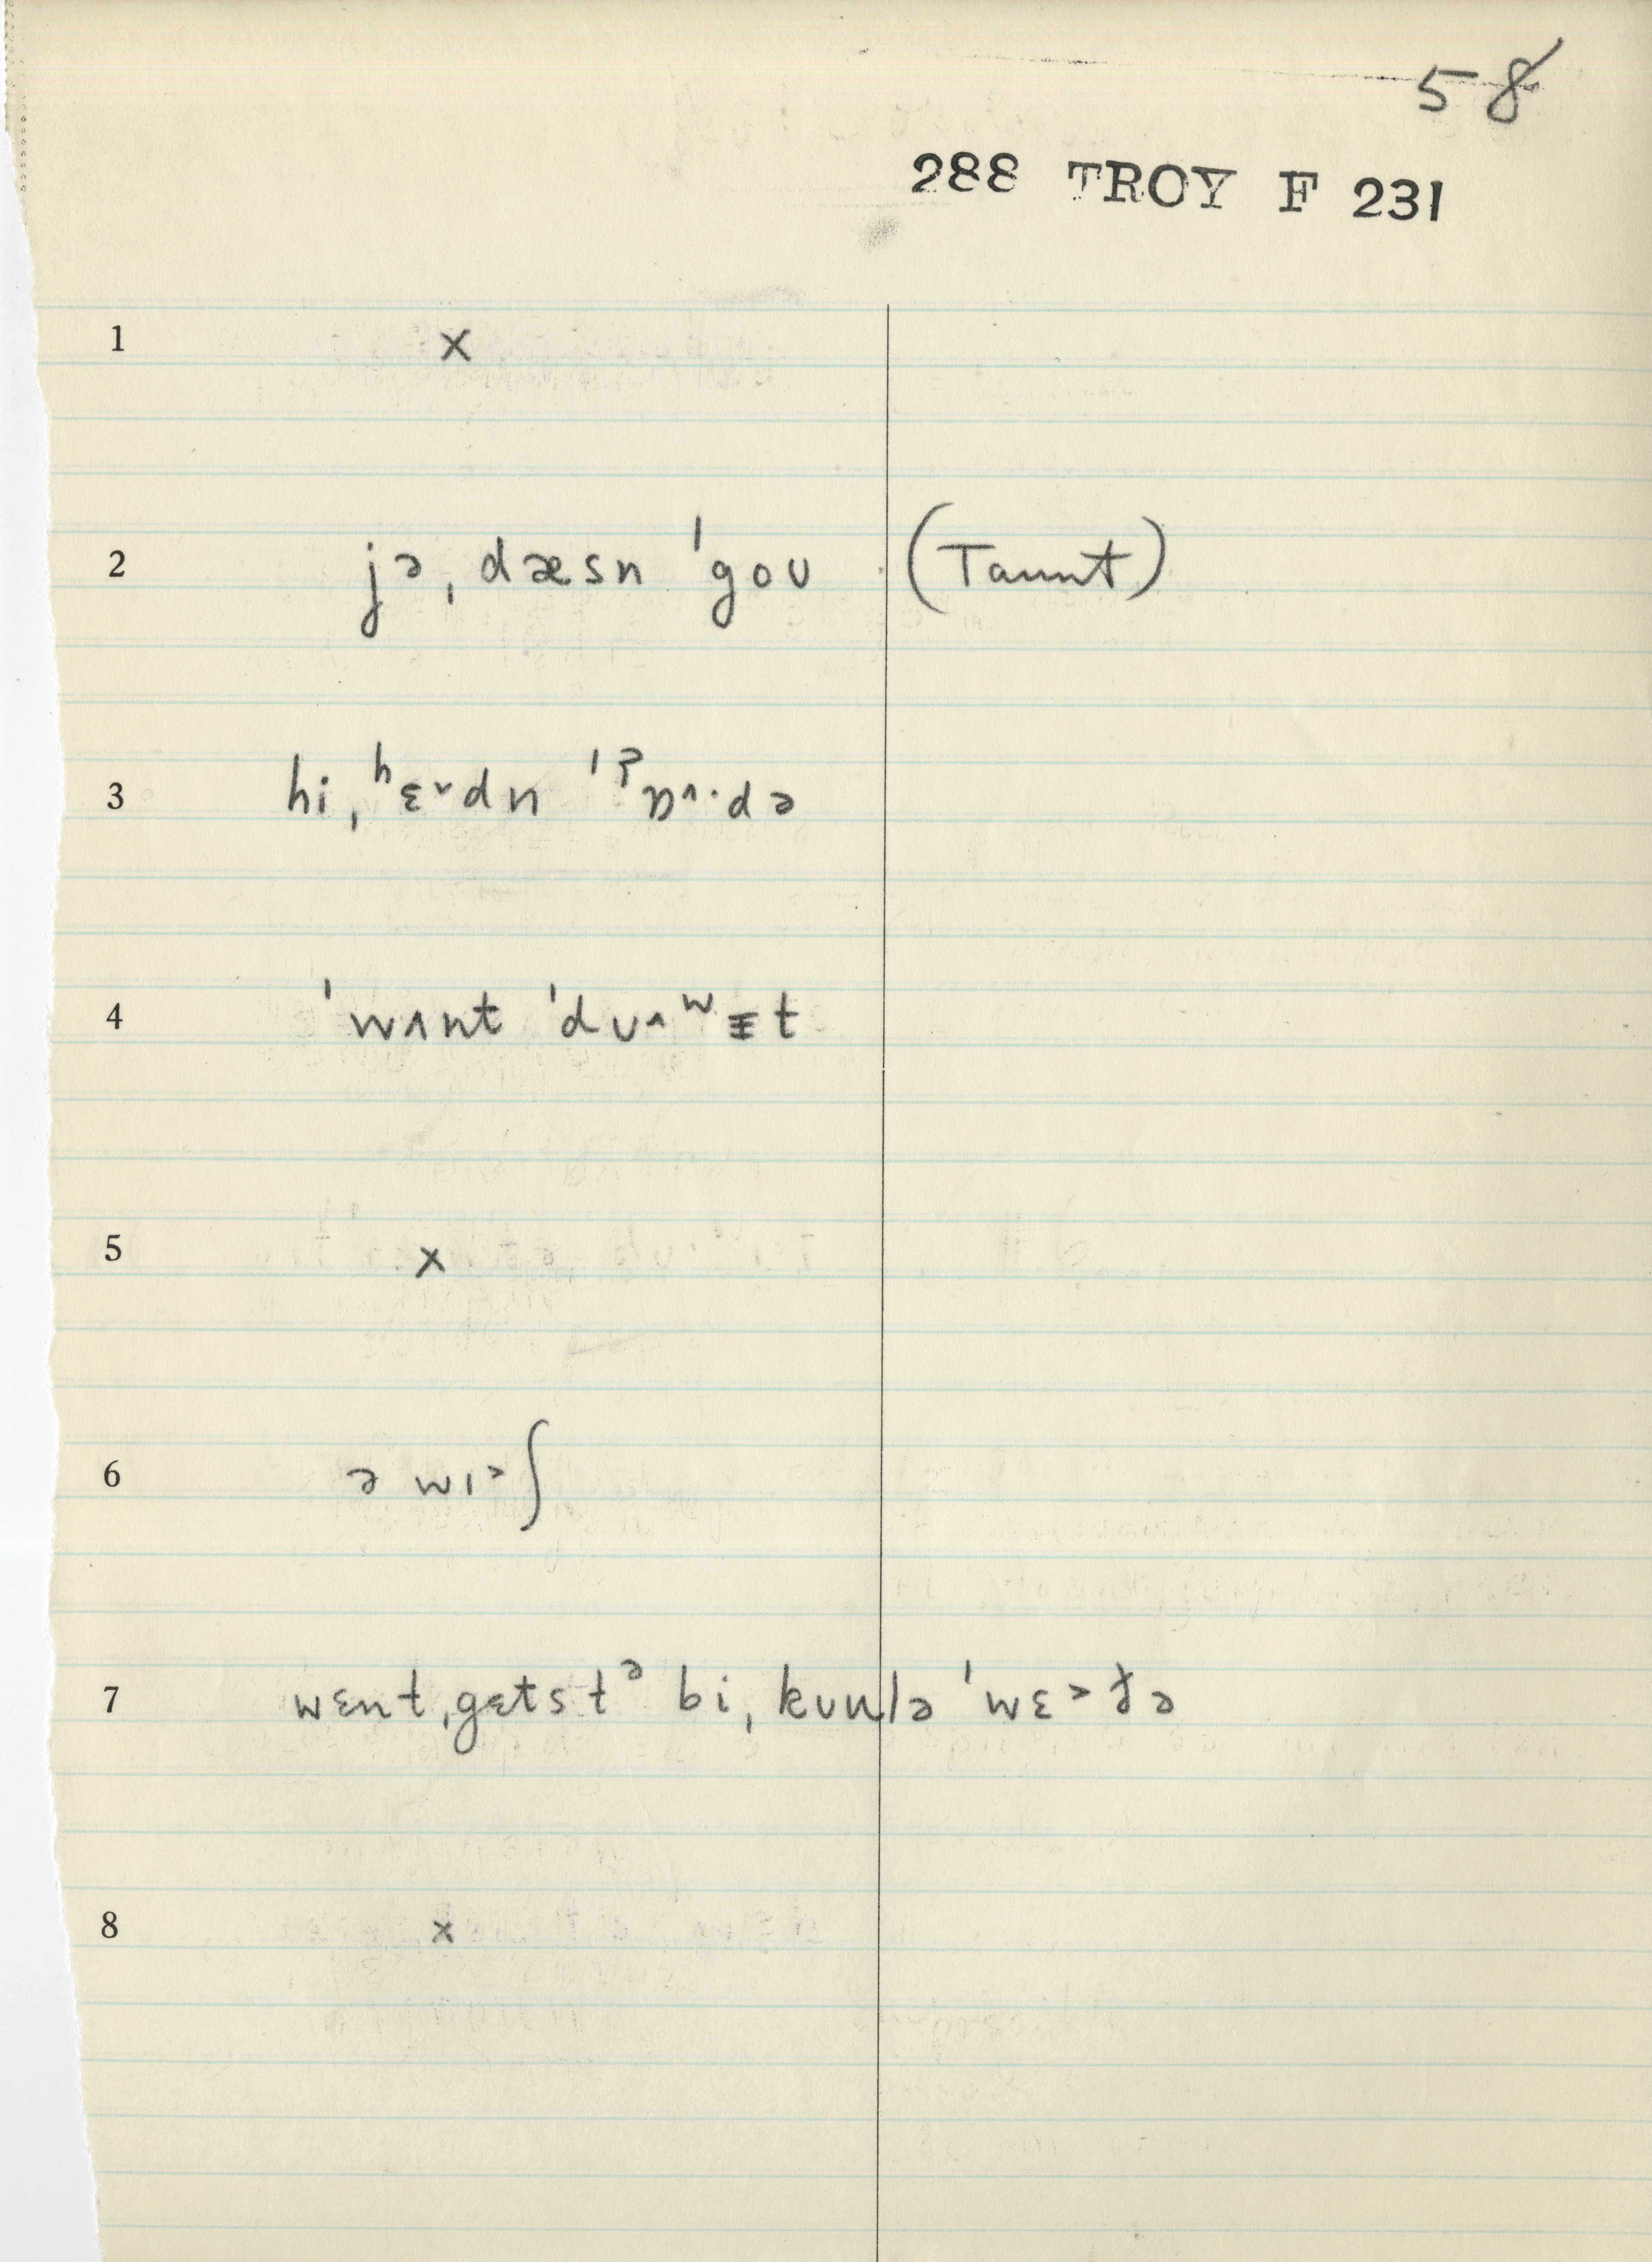 58
288 TROY F 231
1 x
2 jə ˌdæsn ˈgoʊ (Taunt)
3 hi ˌʰɛ˅dn ˈˀɒ˄·də
4 ˈwʌnt ˈdʊ˄ʷɪt
5 x
6 ə wɪ˃ʃ
7 wɛnt ˌgɛtstᵊ bi ˌkʊnlə ˈwɛ˃ðə
8 x